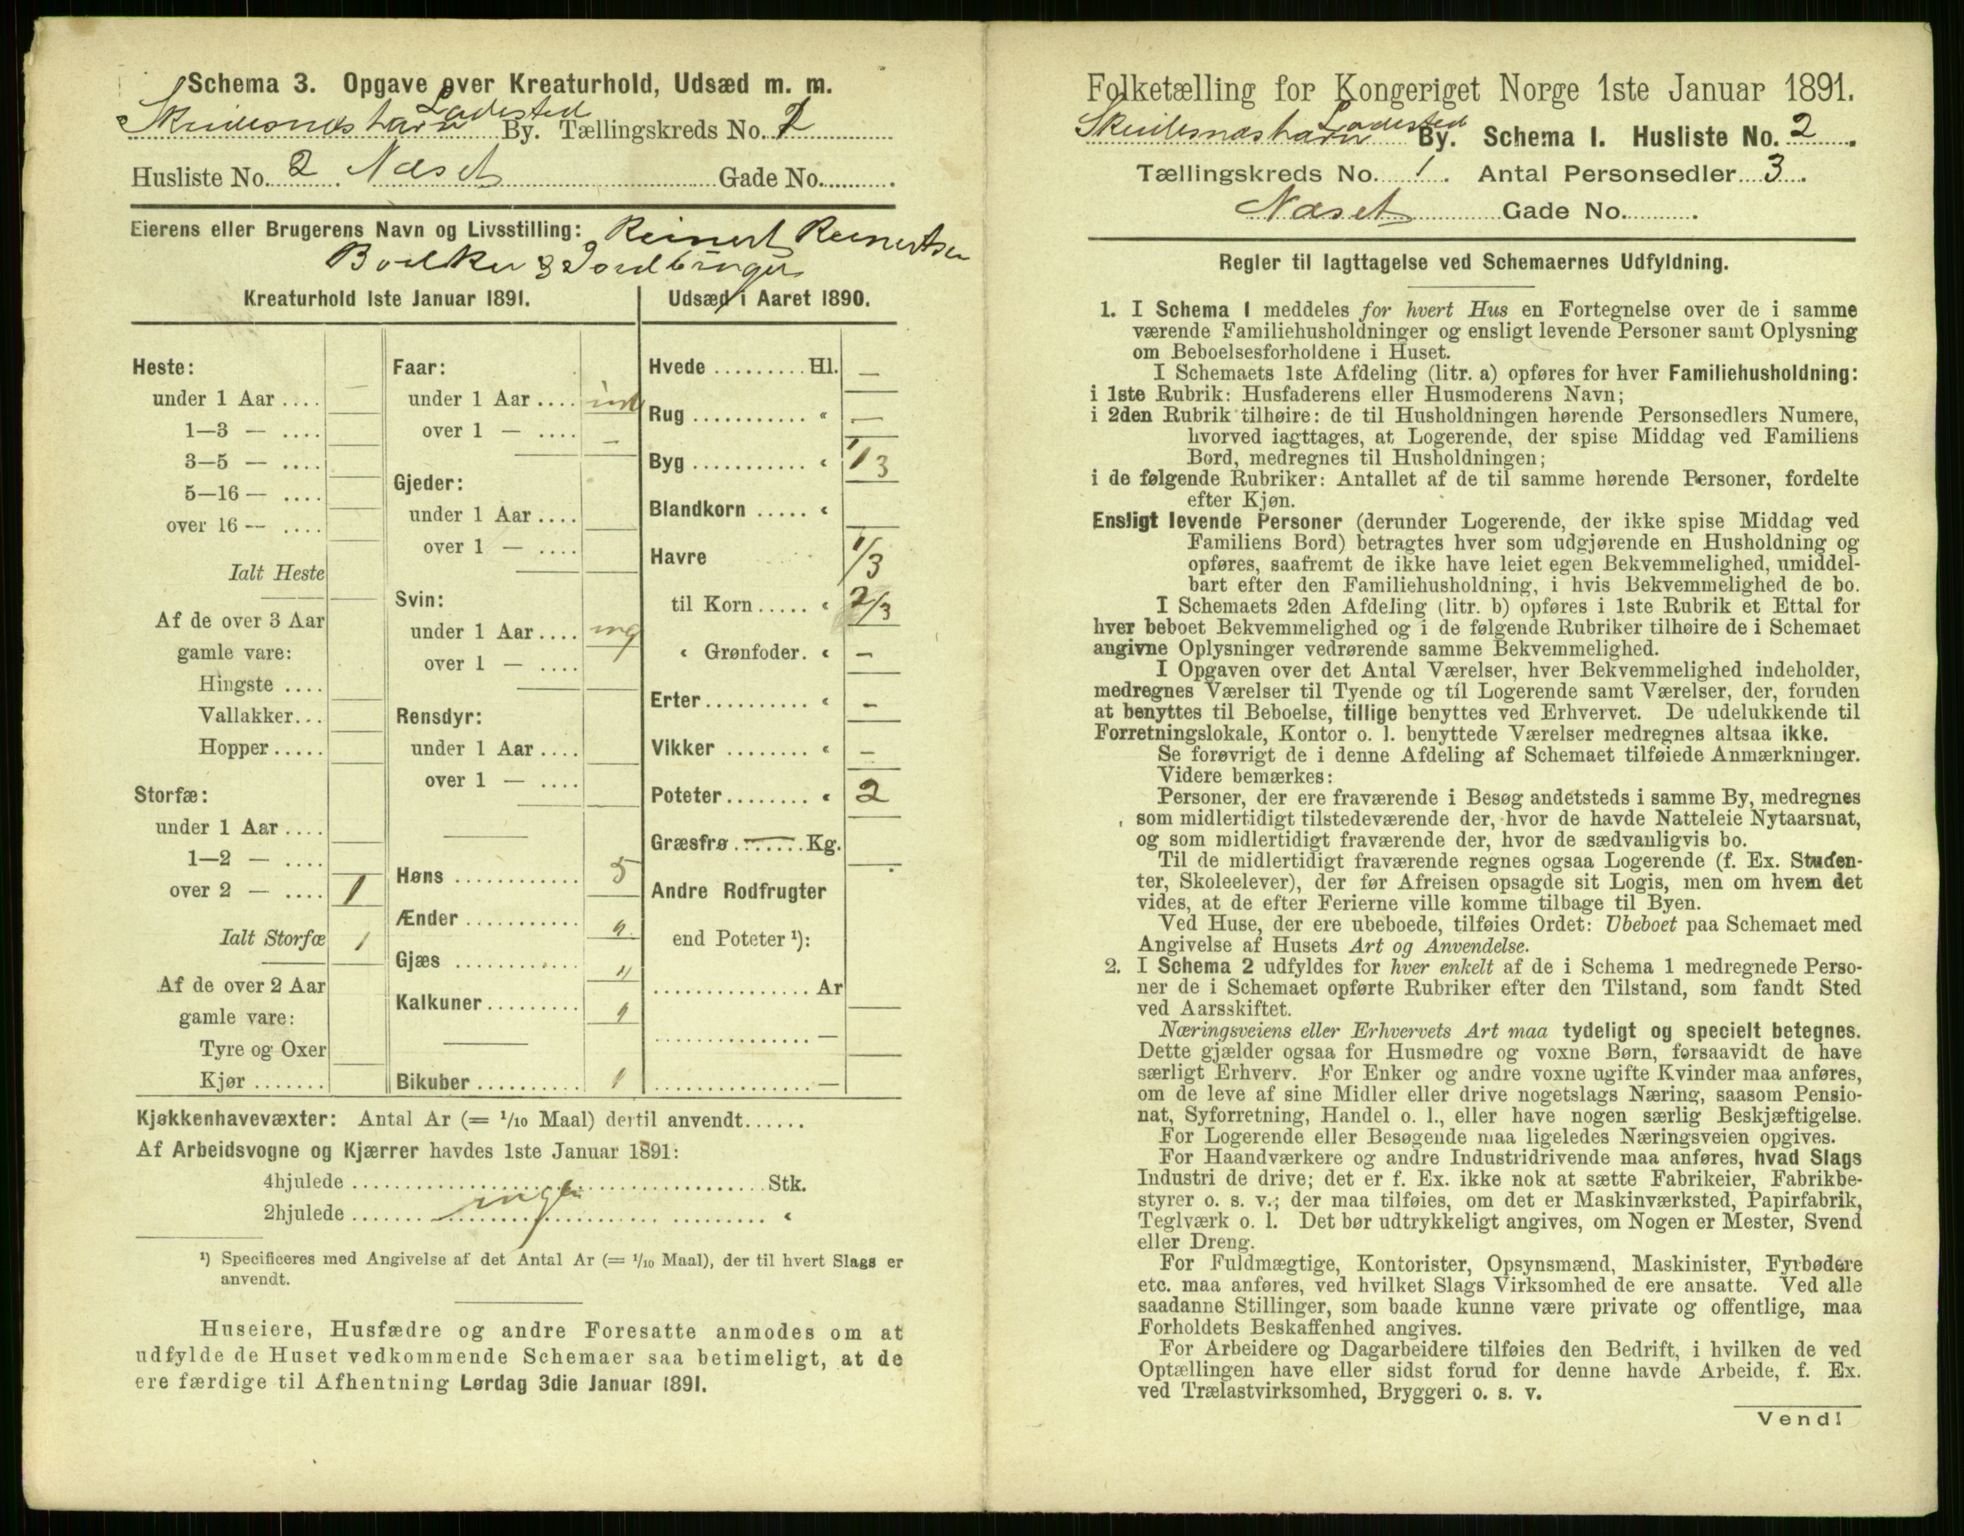 Schema 3. Opgave over Kreaturhold, Udsæd m. m.
Skudesnæshavn Ladested By. Tællingskreds No. 1
Husliste No. 2 Næset Gade No.
Eierens eller Brugerens Navn og Livsstilling: Reinert Reinertsen
Bødker & Jordbruger
Kreaturhold 1ste Januar 1891.
Heste:
under 1 Aar .... —
1—3 — ....
3—5 — ....
5—16 — ....
over 16 — ....
Ialt Heste
Af de over 3 Aar
gamle vare:
Hingste ....
Vallakker...
Hopper.....
Storfæ:
under 1 Aar ....
1—2 — ....
over 2 — .... 1
Ialt Storfæ 1
Af de over 2 Aar
gamle vare:
Tyre og Oxer
Kjør .......
Faar:
under 1 Aar ....
over 1 — .... —
Gjeder:
under 1 Aar ....
over 1 — ....
Svin:
under 1 Aar .... ing
over 1 — ....
Rensdyr:
under 1 Aar ....
over 1 — ....
Høns ............ 5
Ænder ........... "
Gjæs ............ "
Kalkuner ......... "
Bikuber .......... 1
Udsæd i Aaret 1890.
Hvede ......... Hl. —
Rug ........... " —
Byg ........... " 1/3
Blandkorn ..... "
Havre 1/3
til Korn ..... " 2/3
" Grønfoder. " —
Erter.......... " —
Vikker ........ " —
Poteter........ " 2
Græsfrø ....... Kg.
Andre Rodfrugter
end Poteter ¹):
............... Ar
............... —
............... —
Kjøkkenhavevæxter: Antal Ar (= 1/10 Maal) dertil anvendt......
Af Arbeidsvogne og Kjærrer havdes 1ste Januar 1891:
4hjulede .......... Stk.
2hjulede .......... "
ingen
¹) Specificeres med Angivelse af det Antal Ar (= 1/10 Maal), der til hvert Slags er
anvendt.
Huseiere, Husfædre og andre Foresatte anmodes om at
udfylde de Huset vedkommende Schemaer saa betimeligt, at de
ere færdige til Afhentning Lørdag 3die Januar 1891.
Folketælling for Kongeriget Norge 1ste Januar 1891.
Skudesnæshavn Ladested By. Schema I. Husliste No. 2
Tællingskreds No. 1. Antal Personsedler 3.
Næset Gade No.
Regler til Iagttagelse ved Schemaernes Udfyldning.
1. I Schema 1 meddeles for hvert Hus en Fortegnelse over de i samme
værende Familiehusholdninger og ensligt levende Personer samt Oplysning
om Beboelsesforholdene i Huset.
I Schemaets 1ste Afdeling (litr. a) opføres for hver Familiehusholdning:
i 1ste Rubrik: Husfaderens eller Husmoderens Navn;
i 2den Rubrik tilhøire: de til Husholdningen hørende Personsedlers Numere,
hvorved iagttages, at Logerende, der spise Middag ved Familiens
Bord, medregnes til Husholdningen;
i de følgende Rubriker: Antallet af de til samme hørende Personer, fordelte
efter Kjøn.
Ensligt levende Personer (derunder Logerende, der ikke spise Middag ved
Familiens Bord) betragtes hver som udgjørende en Husholdning og
opføres, saafremt de ikke have leiet egen Bekvemmelighed, umiddel-
bart efter den Familiehusholdning, i hvis Bekvemmelighed de bo.
I Schemaets 2den Afdeling (litr. b) opføres i 1ste Rubrik et Ettal for
hver beboet Bekvemmelighed og i de følgende Rubriker tilhøire de i Schemaet
angivne Oplysninger vedrørende samme Bekvemmelighed.
I Opgaven over det Antal Værelser, hver Bekvemmelighed indeholder,
medregnes Værelser til Tyende og til Logerende samt Værelser, der, foruden
at benyttes til Beboelse, tillige benyttes ved Erhvervet. De udelukkende til
Forretningslokale, Kontor o. l. benyttede Værelser medregnes altsaa ikke.
Se forøvrigt de i denne Afdeling af Schemaet tilføiede Anmærkninger.
Videre bemærkes:
Personer, der ere fraværende i Besøg andetsteds i samme By, medregnes
som midlertidigt tilstedeværende der, hvor de havde Natteleie Nytaarsnat,
og som midlertidigt fraværende der, hvor de sædvanligvis bo.
Til de midlertidigt fraværende regnes ogsaa Logerende (f. Ex. Studen-
ter, Skoleelever), der før Afreisen opsagde sit Logis, men om hvem det
vides, at de efter Ferierne ville komme tilbage til Byen.
Ved Huse, der ere ubeboede, tilføies Ordet: Ubeboet paa Schemaet med
Angivelse af Husets Art og Anvendelse.
2. I Schema 2 udfyldes for hver enkelt af de i Schema 1 medregnede Perso-
ner de i Schemaet opførte Rubriker efter den Tilstand, som fandt Sted
ved Aarsskiftet.
Næringsveiens eller Erhvervets Art maa tydeligt og specielt betegnes.
Dette gjælder ogsaa for Husmødre og voxne Børn, forsaavidt de have
særligt Erhverv. For Enker og andre voxne ugifte Kvinder maa anføres,
om de leve af sine Midler eller drive nogetslags Næring, saasom Pensio-
nat, Syforretning, Handel o. l., eller have nogen særlig Beskjæftigelse.
For Logerende eller Besøgende maa ligeledes Næringsveien opgives.
For Haandværkere og andre Industridrivende maa anføres, hvad Slags
Industri de drive; det er f. Ex. ikke nok at sætte Fabrikeier, Fabrikbe-
styrer o. s. v.; der maa tilføies, om det er Maskinværksted, Papirfabrik,
Teglværk o. l. Det bør udtrykkeligt angives, om Nogen er Mester, Svend
eller Dreng.
For Fuldmægtige, Kontorister, Opsynsmænd, Maskinister, Fyrbødere
etc. maa anføres, ved hvilket Slags Virksomhed de ere ansatte. Ved alle
saadanne Stillinger, som baade kunne være private og offentlige, maa
Forholdets Beskaffenhed angives.
For Arbeidere og Dagarbeidere tilføies den Bedrift, i hvilken de ved
Optællingen have eller sidst forud for denne havde Arbeide, f. Ex.
ved Trælastvirksomhed, Bryggeri o. s. v.
Vend!